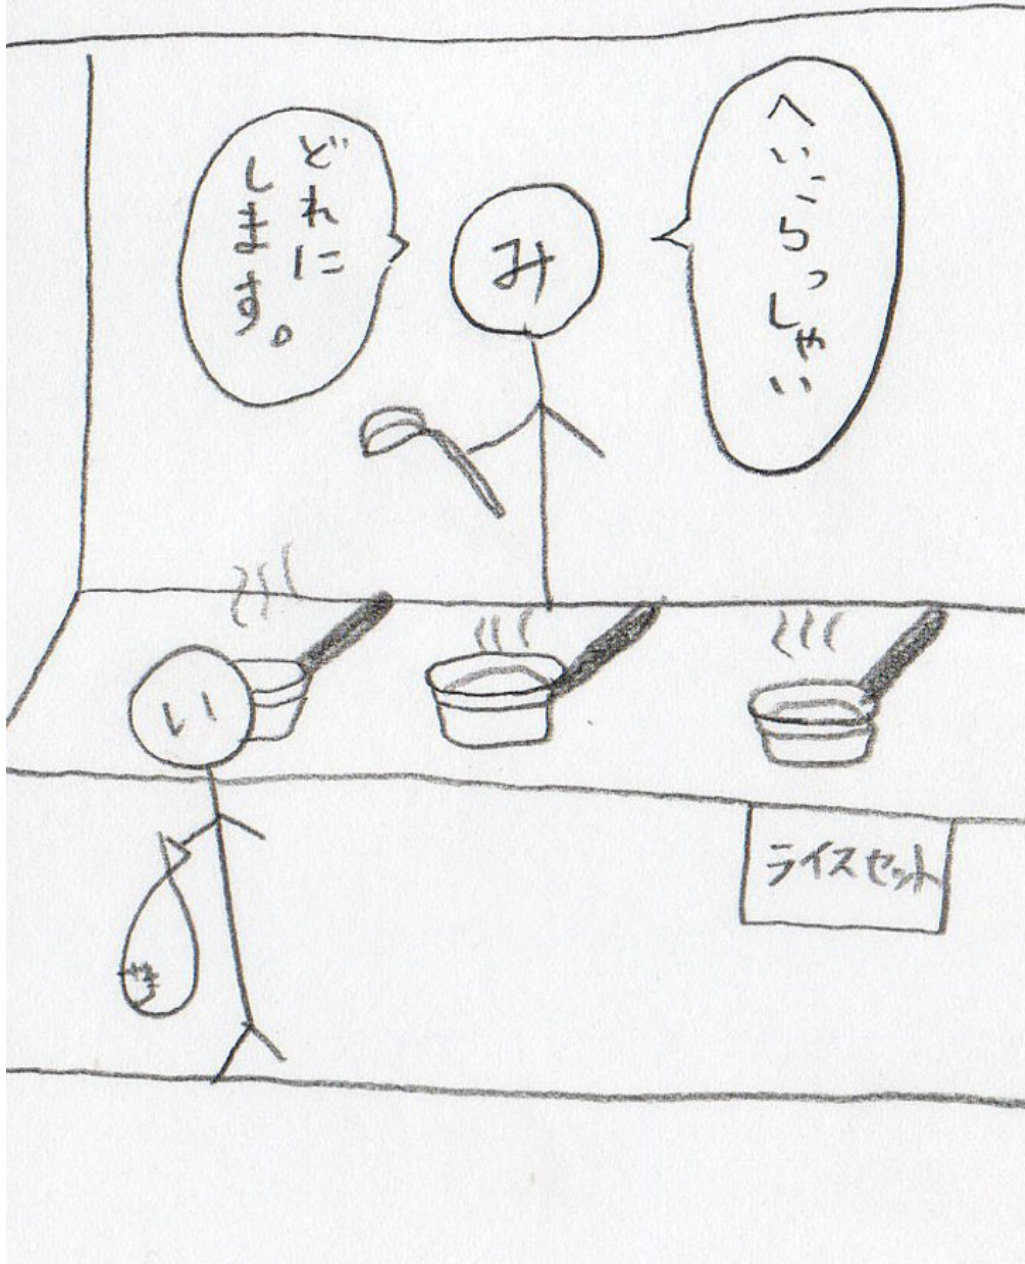 へいらっしゃい
み
どれに
します。
い
ライスセット